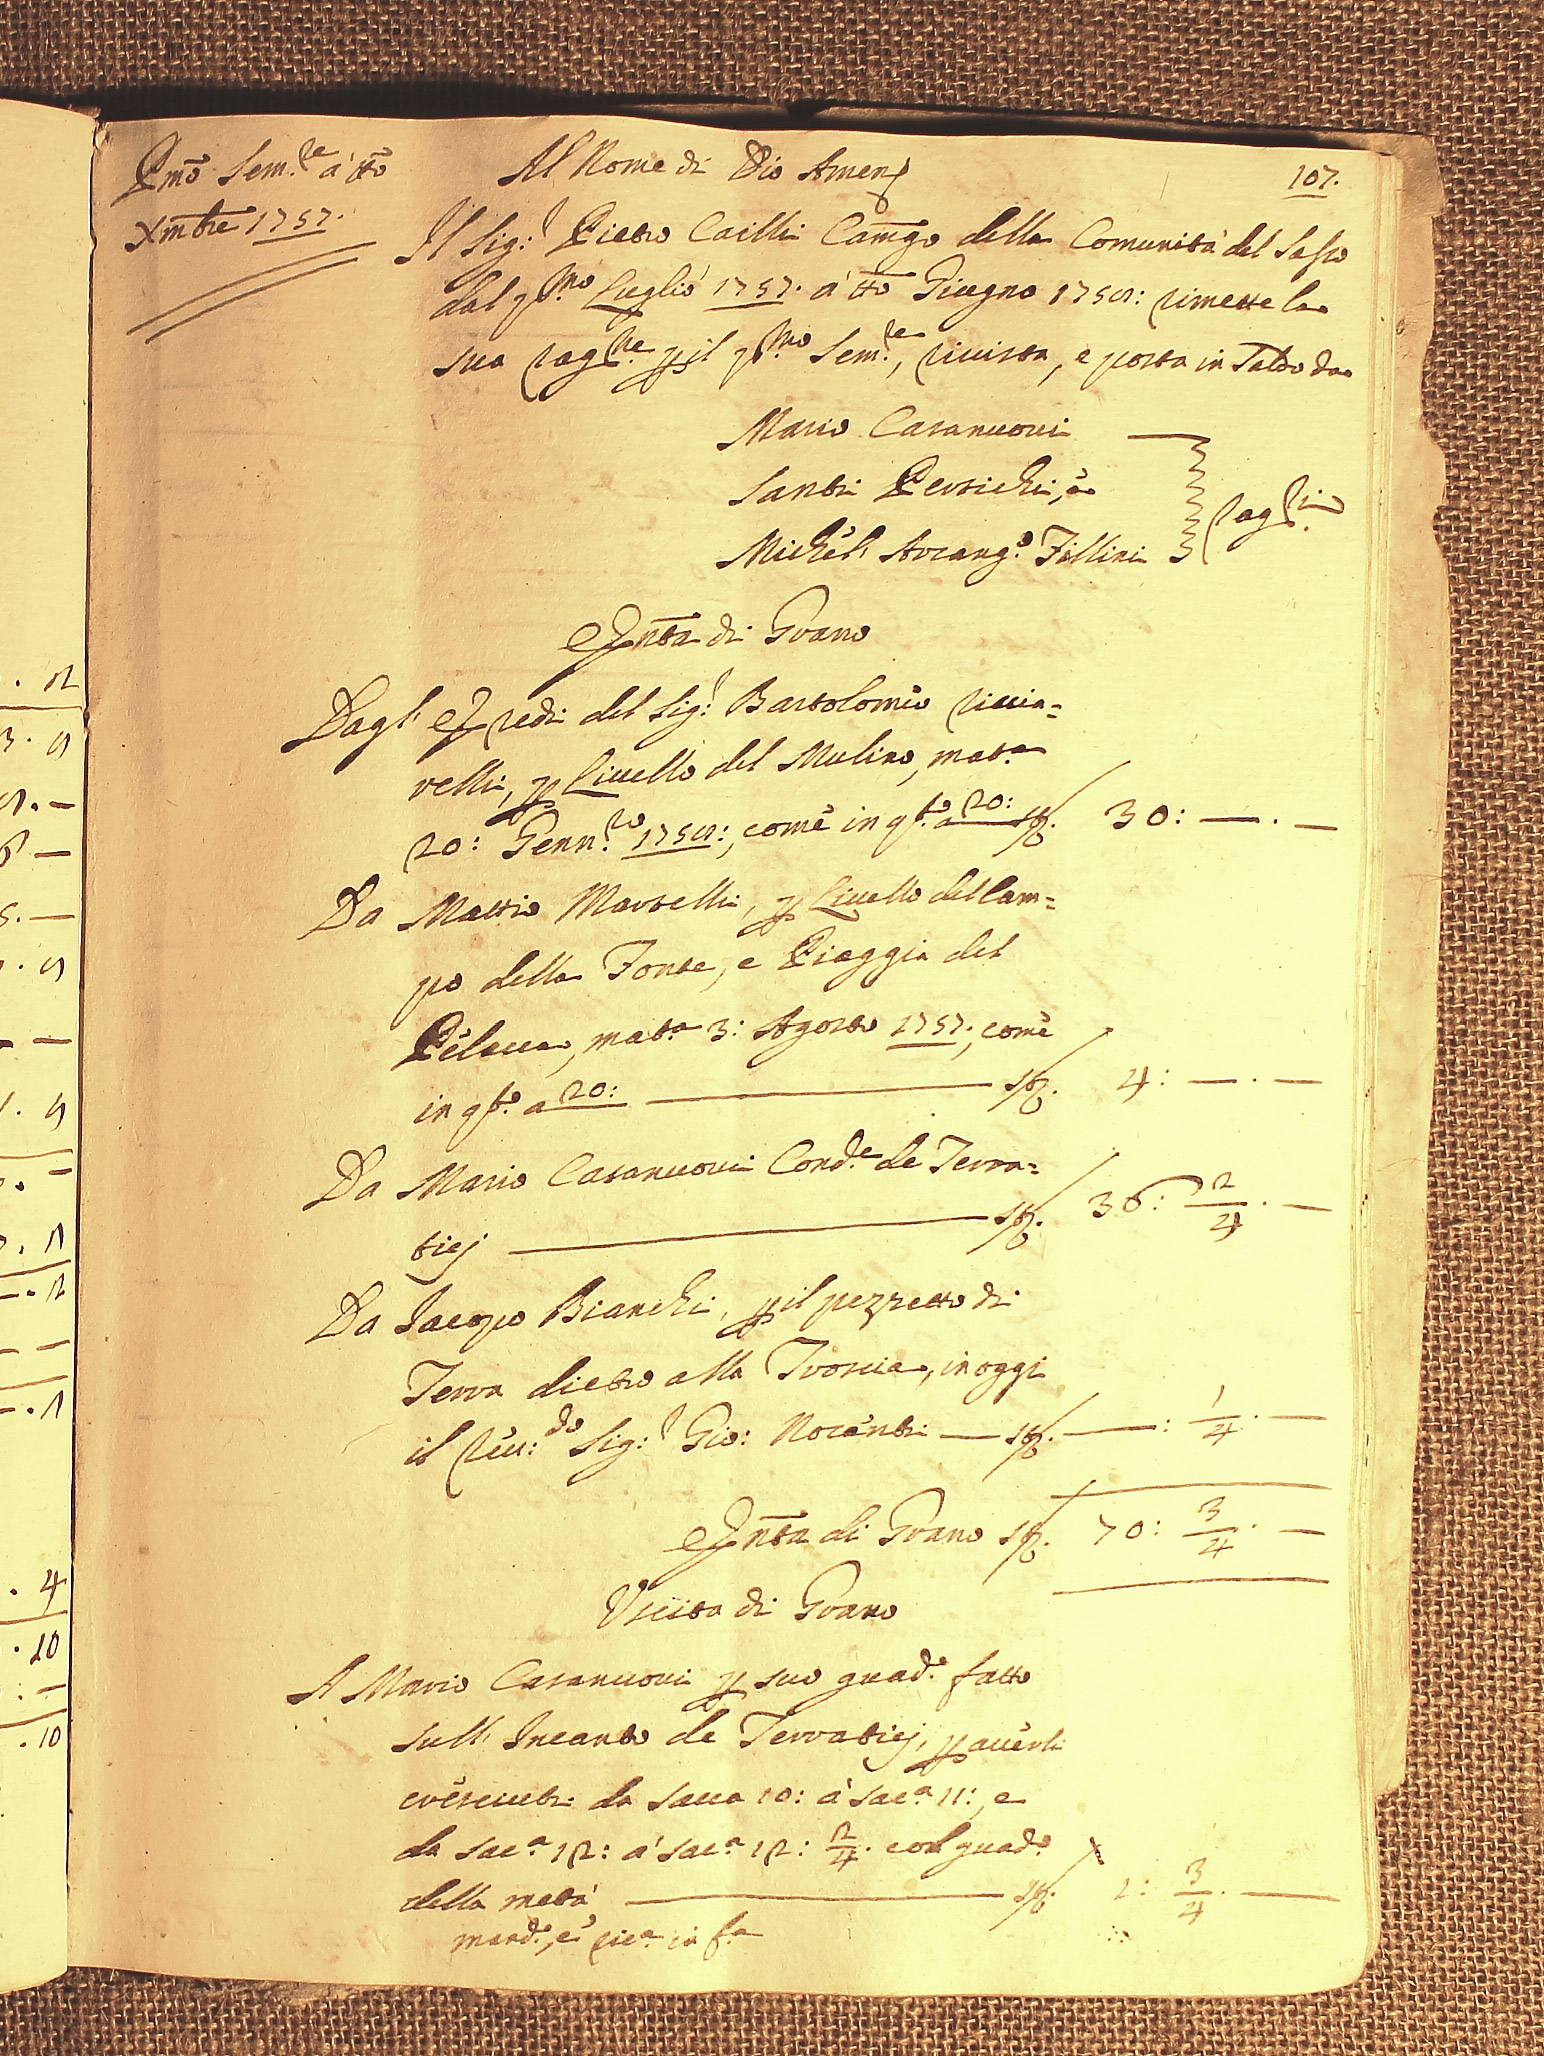 Pmo Sem.re a tto
Xmbre 1757.
Al Nome di Dio Amen
107.
Il Sig.r Pietro Cailli Camgo della Comunità del Sasso
dal pmo Luglio 1757. à tto Giugno 1758: rimette la
sua ragne p il pmo Sem.re, rivista, e posta in Saldo da
Mario Casanuovi
Santi Persichi, e
Michel' Arcang.o Fillini
rag.ri
Entta di Grano
Dagl' Eredi del Sig.r Bartolomeo Riccia=
relli, p Livello del Mulino, mat.a
20: Genn.ro 1758:, come in qto a 20: 30: — . —
Da Mattio Martelli, p Livello del Cam=
po della Fonte, e Piaggia del
Pelacca, mat.a 3: Agosto 1757., come
in qto a 20: — 4: — . —
Da Mario Casanuovi Cond.e de Terra=
tici — 36: 2/4 . —
Da Iacopo Bianchi, p il pezzetto di
Terra dietro alla Troscia, in oggi
il Rev:do Sig.r Gio: Nocenti — — : 1/4 . —
Entta di Grano 70: 3/4 . —
Uscita di Grano
A Mario Casanuovi p suo guad.o fatto
sull' Incanto de Terratici, p averli
cresciuti da Sacca 10: à Sac.a 11:, e
da Sac.a 12: à Sac.a 12: 2/4. col guad.o
della metà — 1: 3/4 . —
mand.o, e ric.a in f.a
. 12
3. 9
. —
6 —
5. —
. 9
— —
. 9
. —
. 1
— . 2
— —
— . 1
. 4
. 10
. —
. 10